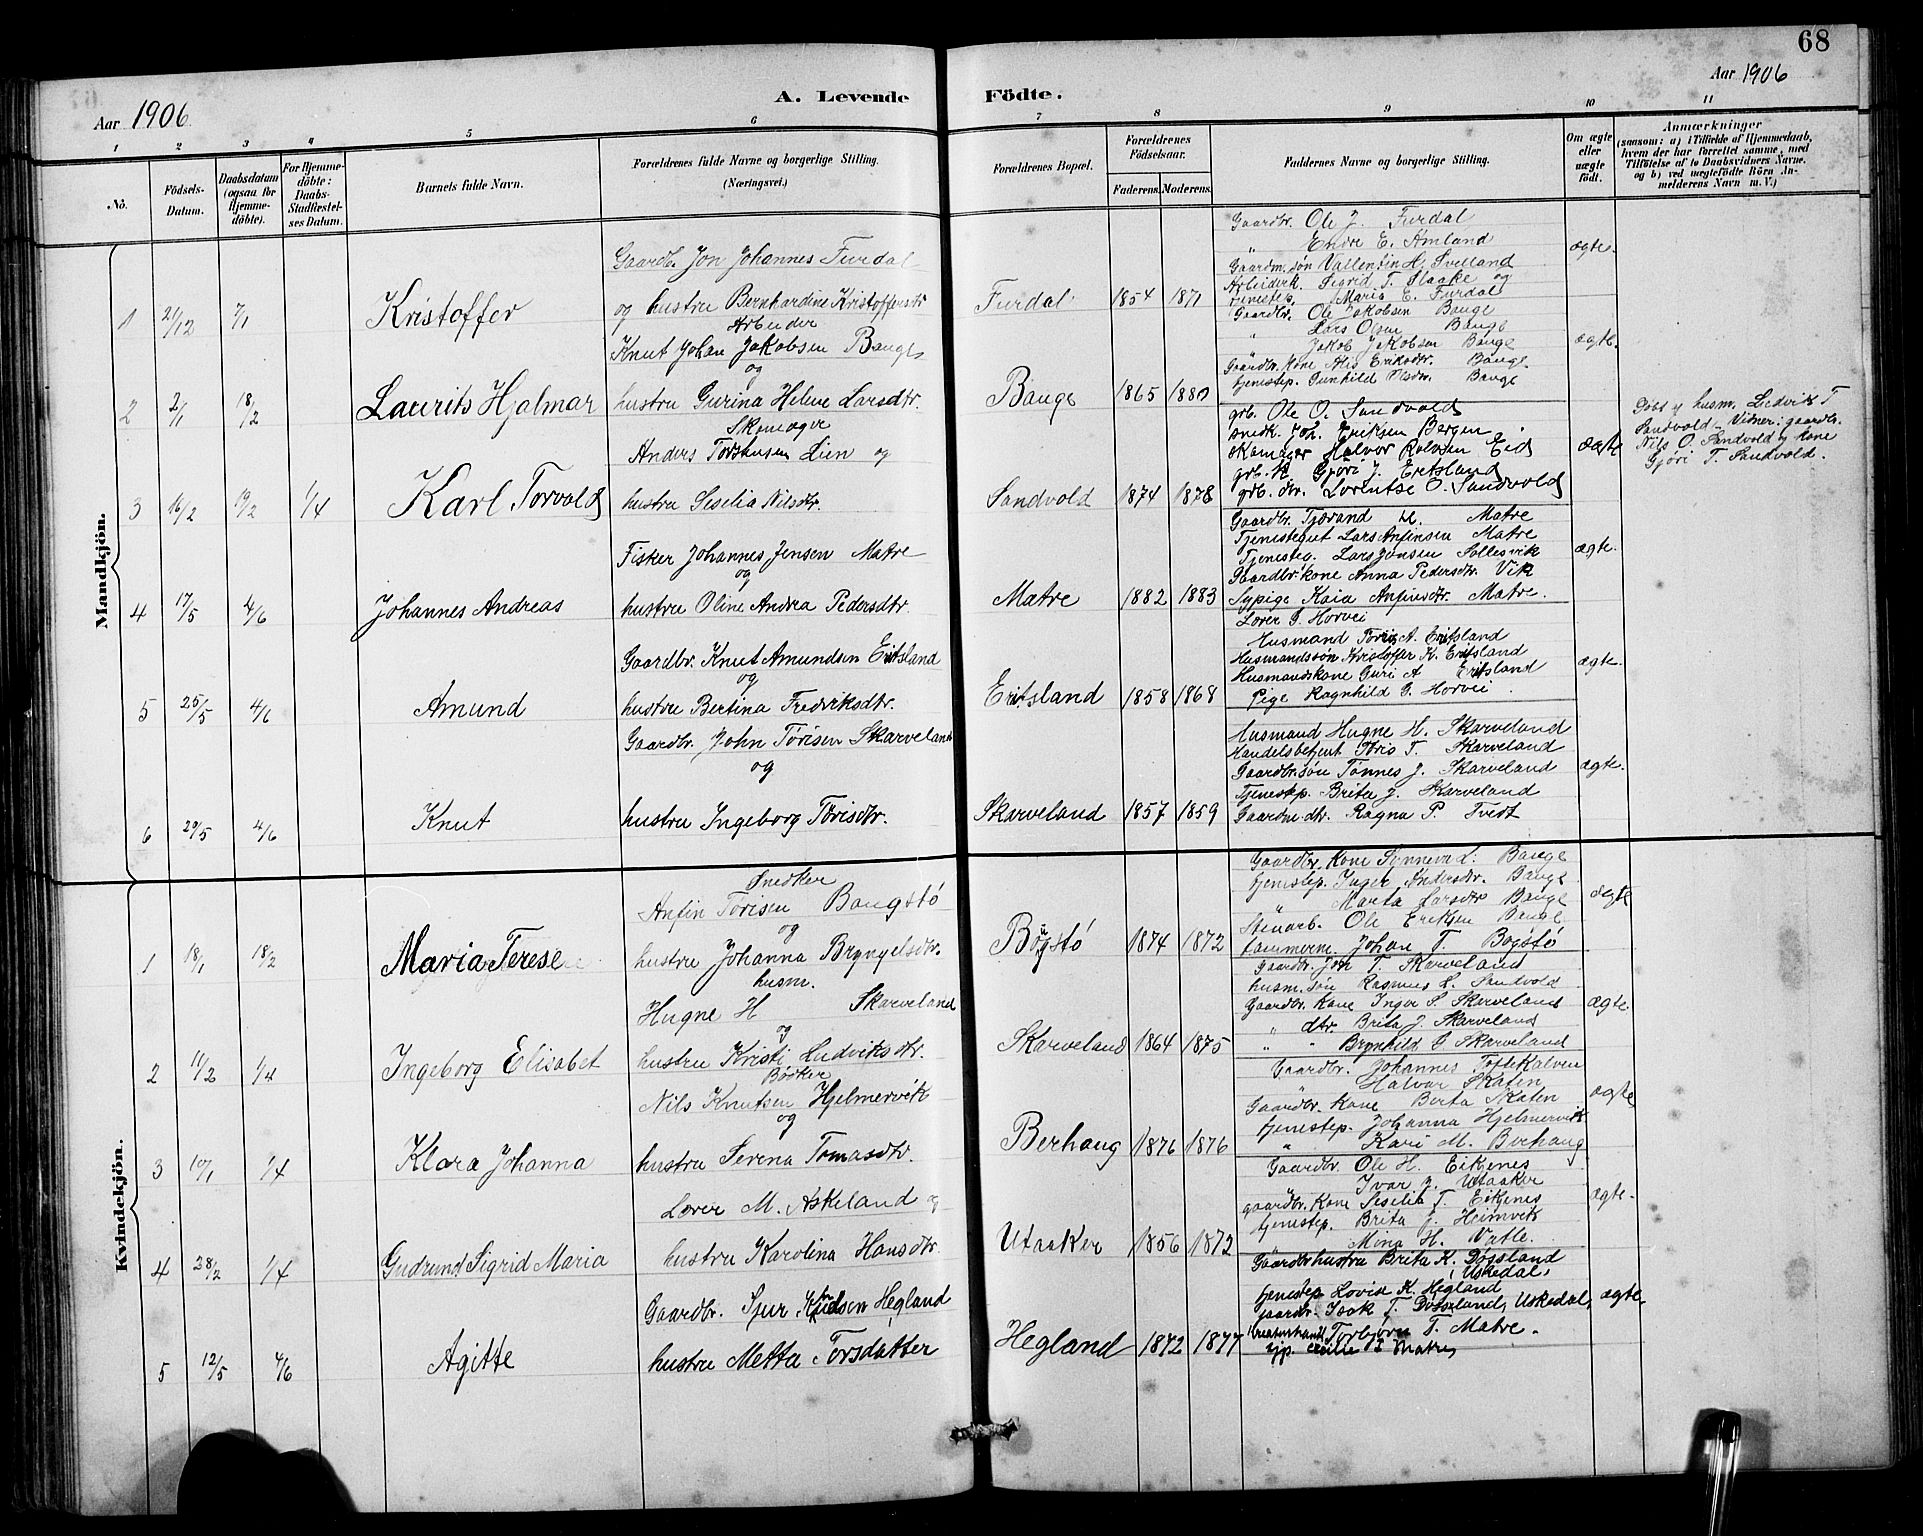 68
Aar 1906
A. Levende Födte.
Aar 1906
1 2 3 4 5 6 7 8 9 10 11
No.
Födsels-Datum.
Daabsdatum (ogsaa for Hjemme-döbte).
For Hjemme-döbte: Daabs-Stadfæstel-ses Datum.
Barnets fulde Navn.
Forældrenes fulde Navne og borgerlige Stilling.
(Næringsvei.)
Forældrenes Bopæl.
Forældrenes Födselsaar.
Faderens. Moderens.
Faddernes Navne og borgerlige Stilling.
Om ægte eller uægte födt.
Anmærkninger
(saasom: a) i Tilfælde af Hjemmedaab,
hvem der har forrettet samme, med
Tilföielse af to Daabsvidners Navne.
og b) ved uægtefödte Börn An-
melderens Navn m. V.)
Mandkjön.
1 21/12 7/1 Kristoffer
Gaardb. Jon Johannes Furdal
og hustru Bernhardine Kristoffersdtr
Furdal 1854 1871
Gaardbr. Ole J. Furdal
" Endre E. Åmland
Gaardm. søn Vallentin H. Svelland
Arbeiderk. Sigrid T. Slaake og
tjenestep. Maria E. Furdal
ægte.
2 2/1 18/2 Laurits Hjalmar
Arbeider
Knut Johan Jakobsen Bauge
og
hustru Gurina Helene Larsdtr.
Bauge 1865 1880
Gaardbr. Ole Jakobsen Bauge
" Lars Olsen Bauge
" Jakob Jakobsen Bauge
Gaardbr. Kone Åles Eriksdtr. Bauge
tjenestep. Gunhild Olsdr. Bauge
ægte.
3 16/2 19/2 1/4 Karl Torvald
Skomager
Anders Torstensen Lien og
hustru Seselia Nilsdtr.
Sandvold 1874 1878
grb. Ole O. Sandvold
snedk. Joh. Eriksen Bergen
skomager Halvor Rolvsen Eid
grb. k. Gjøri J. Eritsland
grb. dtr. Lorentse O. Sandvold
ægte
Døbt af husm. Ludvik T
Sandvold. Vidner: gaardbr.
Nils O. Sandvold og kone
Gjøri T. Sandvold.
4 17/5 4/6 Johannes Andreas
Fisker Johannes Jensen Matre
og
hustru Oline Andrea Pedersdtr.
Matre 1882 1883
Gaardbr. Tjerand H. Matre
Tjenestegut Lars Anfinsen Matre
Tjenesteg. Lars Jonsen Sollesvik
Gaardbr. kone Anna Pedersdtr. Vik
Sypige Kaia Anfinsdtr. Matre.
ægte.
5 25/5 4/6 Amund
Gaardbr. Knut Amundsen Eritsland
og
hustru Bertina Fredriksdtr.
Eritsland 1858 1868
Lærer G. Horvei
Husmand Tøris A. Eritsland
Husmandssøn Kristoffer K. Eritsland
Husmandskone Guri A Eritsland
Pige Ragnhild G. Horvei
ægte.
6 29/5 4/6 Knut
Gaardbr. John Tørisen Skarveland
og
hustru Ingeborg Tørisdtr.
Skarveland 1857 1859
Husmand Hugne H. Skarveland
Handelsbetjent Tøris T. Skarveland
Gaardbr. søn Tønnes J. Skarveland
Tjenestep. Brita J. Skarveland
Gaardm. dtr. Ragna P. Tvedt
ægte.
Kvindekjön.
1 18/1 18/2 Maria Terese
Snedker
Anfin Torisen Baugstø
og
hustru Johanna Bryngelsdtr.
Bøgstø 1874 1872
Gaardbr. Kone Synneva L. Bauge
tjenestep. Inger Andersdtr. Bauge
" Marta Larsdtr Bauge
Stenarb. Ole Eriksen Bauge
tømmerm. Johan T. Bogstø
ægte
2 11/2 1/4 Ingeborg Elisabet
husm.
Hugne H Skarveland
og
hustru Kristi Ludviksdtr.
Skarveland 1864 1875
Gaardbr. Jon T. Skarveland
husm. søn Rasmus L. Sandvold
Gaardbr. Kone Inger S. Skarveland
" dtr. Brita J. Skarveland
" " Brynhild G Skarveland
ægte
3 10/1 1/4 Klara Johanna
Bødker
Nils Knutsen Hjelmervik
og
hustru Serena Tomasdtr.
Berhaug 1876 1876
Gaardbr. Johannes Toftekalven
" Halvor Skaten
Gaardbr. Kone Berta Skaten
tjenestep. Johanna Hjelmervik
" Kari M. Berhaug
ægte
4 28/2 1/4 Gudrund Sigrid Maria
Lærer M. Askeland og
hustru Karolina Hansdtr.
Utaaker 1856 1872
Gaardbr. Ole H. Eikenes
" Ivar J. Utaaker
gaardbr. Kone Seselia T. Eikenes
tjenestep. Brita J. Heimvik
Mina H. Valle.
ægte.
5 12/5 4/6 Agitte
Gaardbr. Sjur Knudsen Hegland
hustru Metta Torsdatter
Hegland 1872 1877
Gaardbrhustru Brita K. Døssland
Uskedal
tjenestep Lovise K. Hegland
gaardbr. Isak T. Døssland, Uskedal,
Kreaturhandl Torbjørn T. Matre.
syp. Cecilie T Matre
ægte.